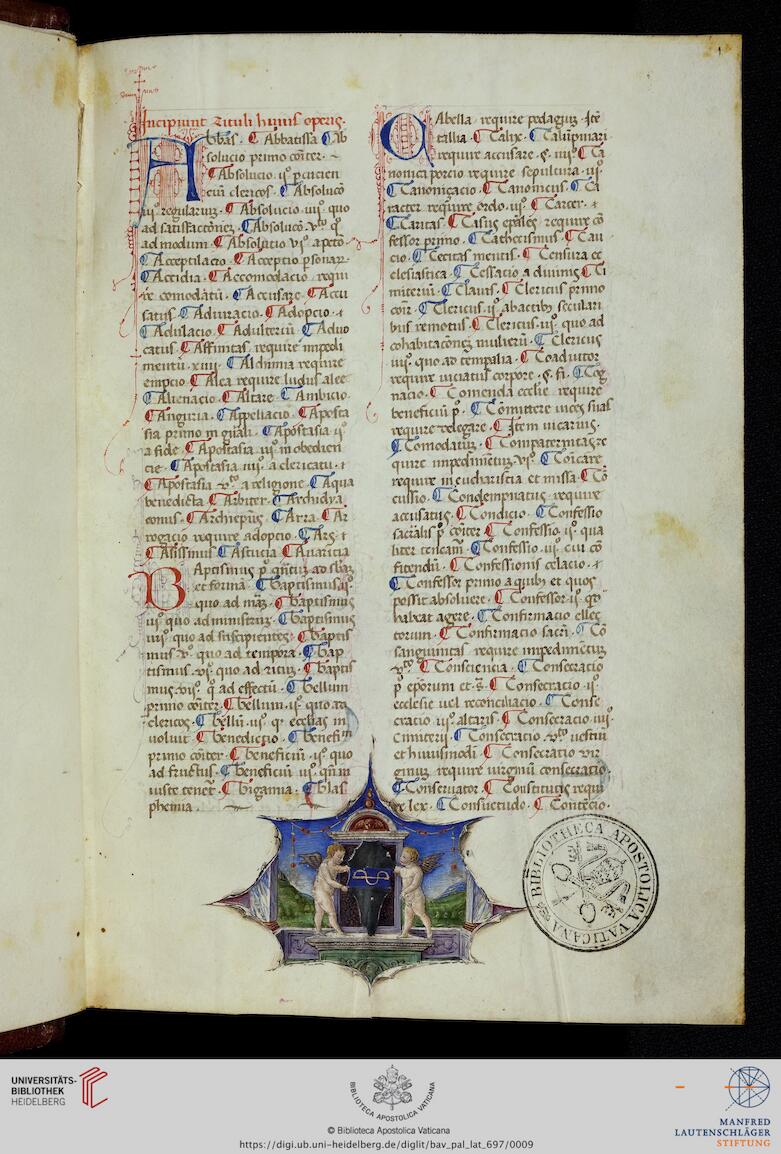 1
Incipiunt Tituli huius operis.
Abbas. Abbatissa Ab
solucio primo coiter.
Absolucio. ii° p cuicien
cium clericos. Absoluco
iii° regularium. Absolucio. iiii° quo
ad satisfacconez. Absoluco. vto q°
ad modum. Absolutio vi° a peto
Acceptilacio. Acceptio psonarum
Accidia. Accomodacio requi
re comodatu. Accusare. Accu
satus. Adiuracio. Adopcio. r
Adulacio. Adulterium. Aduo
catus. Affinitas. require impedi
mentu xiiii. Alchimia require
empcio. Alea require ludus alee
Alienacio. Altare. Ambicio.
Anguria. Appellacio. Aposta
sia primo in gnali. Apostasia ii°
a fide. Apostasia iii° in obedien
cie. Apostasia iiii° a clericatu. r
Apostasia vto a religione. Aqua
benedicta. Arbiter. Archidya
conus. Archiepus. Arra. Ar
rogacio require adopcio. Ars. r
Assissimus. Astucia. Auaricia
Baptismus p° quatum ad sbaz
et forma. Baptismus ii°
quo ad maz. baptismus
iii° quo ad ministruz. baptismus
iiii° quo ad suscipientes. baptis
mus v° quo ad tempora. bap
tismus vi° quo ad rituz. baptis
mus. vii° q° ad effectu. bellum
primo coiter. bellum. ii° quo ad
clericos. bellu. iii° q° ecclias in
uoluit. benedictio. benefim
primo coiter. beneficiu. ii° quo
ad fructus. beneficiu iii° qn in
iuste tenet. bigamia. blas
phemia.
Cabella require pedagiuz. Ite
tallia. Calix. Calumpniari
require accusare. §. iiii°. Ca
nonica porcio require sepultura. iii°
Canonizacio. Canonicus. Ca
racter require ordo. ii°. Carcer. r
Caritas. Casus epales require co
fessor primo. Cathecismus. Cau
cio. Cecitas mentis. Censura ec
clesiastica. Cessatio a diuinis. Ci
miterium. Clauis. Clericus primo
coit. Clericus. ii° ab actib° seculari
bus remotus. Clericus. iii° quo ad
cohabitaconez mulieru. Clericus
iiii° quo ad tempalia. Coadiutor
require uiciatus corpore. §. fi. Cog
nacio. Comenda ecclie require
beneficiu p°. Comittere uices suas
require delegare. Item uicarius.
Comodatuz. Compaternitas re
quire impedimetuz. vi°. Coicare
require in eucharistia et missa. Co
cussio. Condempnatus require
accusatus. Condicio. Confessio
sacralis p° coiter. Confessio. ii° qua
liter Confessio. iii° cui co
fitendu. Confessionis celacio. r
Confessor primo a quib° et quos
possit absoluere. Confessor. ii° qd
habeat agere. Confirmacio elec
torum. Confirmacio sacri. Co
sanguinitas require impedimetuz
vto. Consciencia. Consecratio
p° eporum et Consecratio. ii°
ecclesie uel reconciliacio. Conse
cratio iii° altaris. Consecratio iiii°
cimiterii. Consecratio. vto uestiu
et huiusmodi. Consecratio vir
ginuz require uirginu consecratio
Conseruator. Constitutio requi
re lex. Consuetudo. Contecio.
BIBLIOTHECA APOSTOLICA VATICANA
UNIVERSITÄTS-
BIBLIOTHEK
HEIDELBERG
BIBLIOTECA APOSTOLICA VATICANA
© Biblioteca Apostolica Vaticana
https://digi.ub.uni-heidelberg.de/diglit/bav_pal_lat_697/0009
MANFRED
LAUTENSCHLÄGER
STIFTUNG